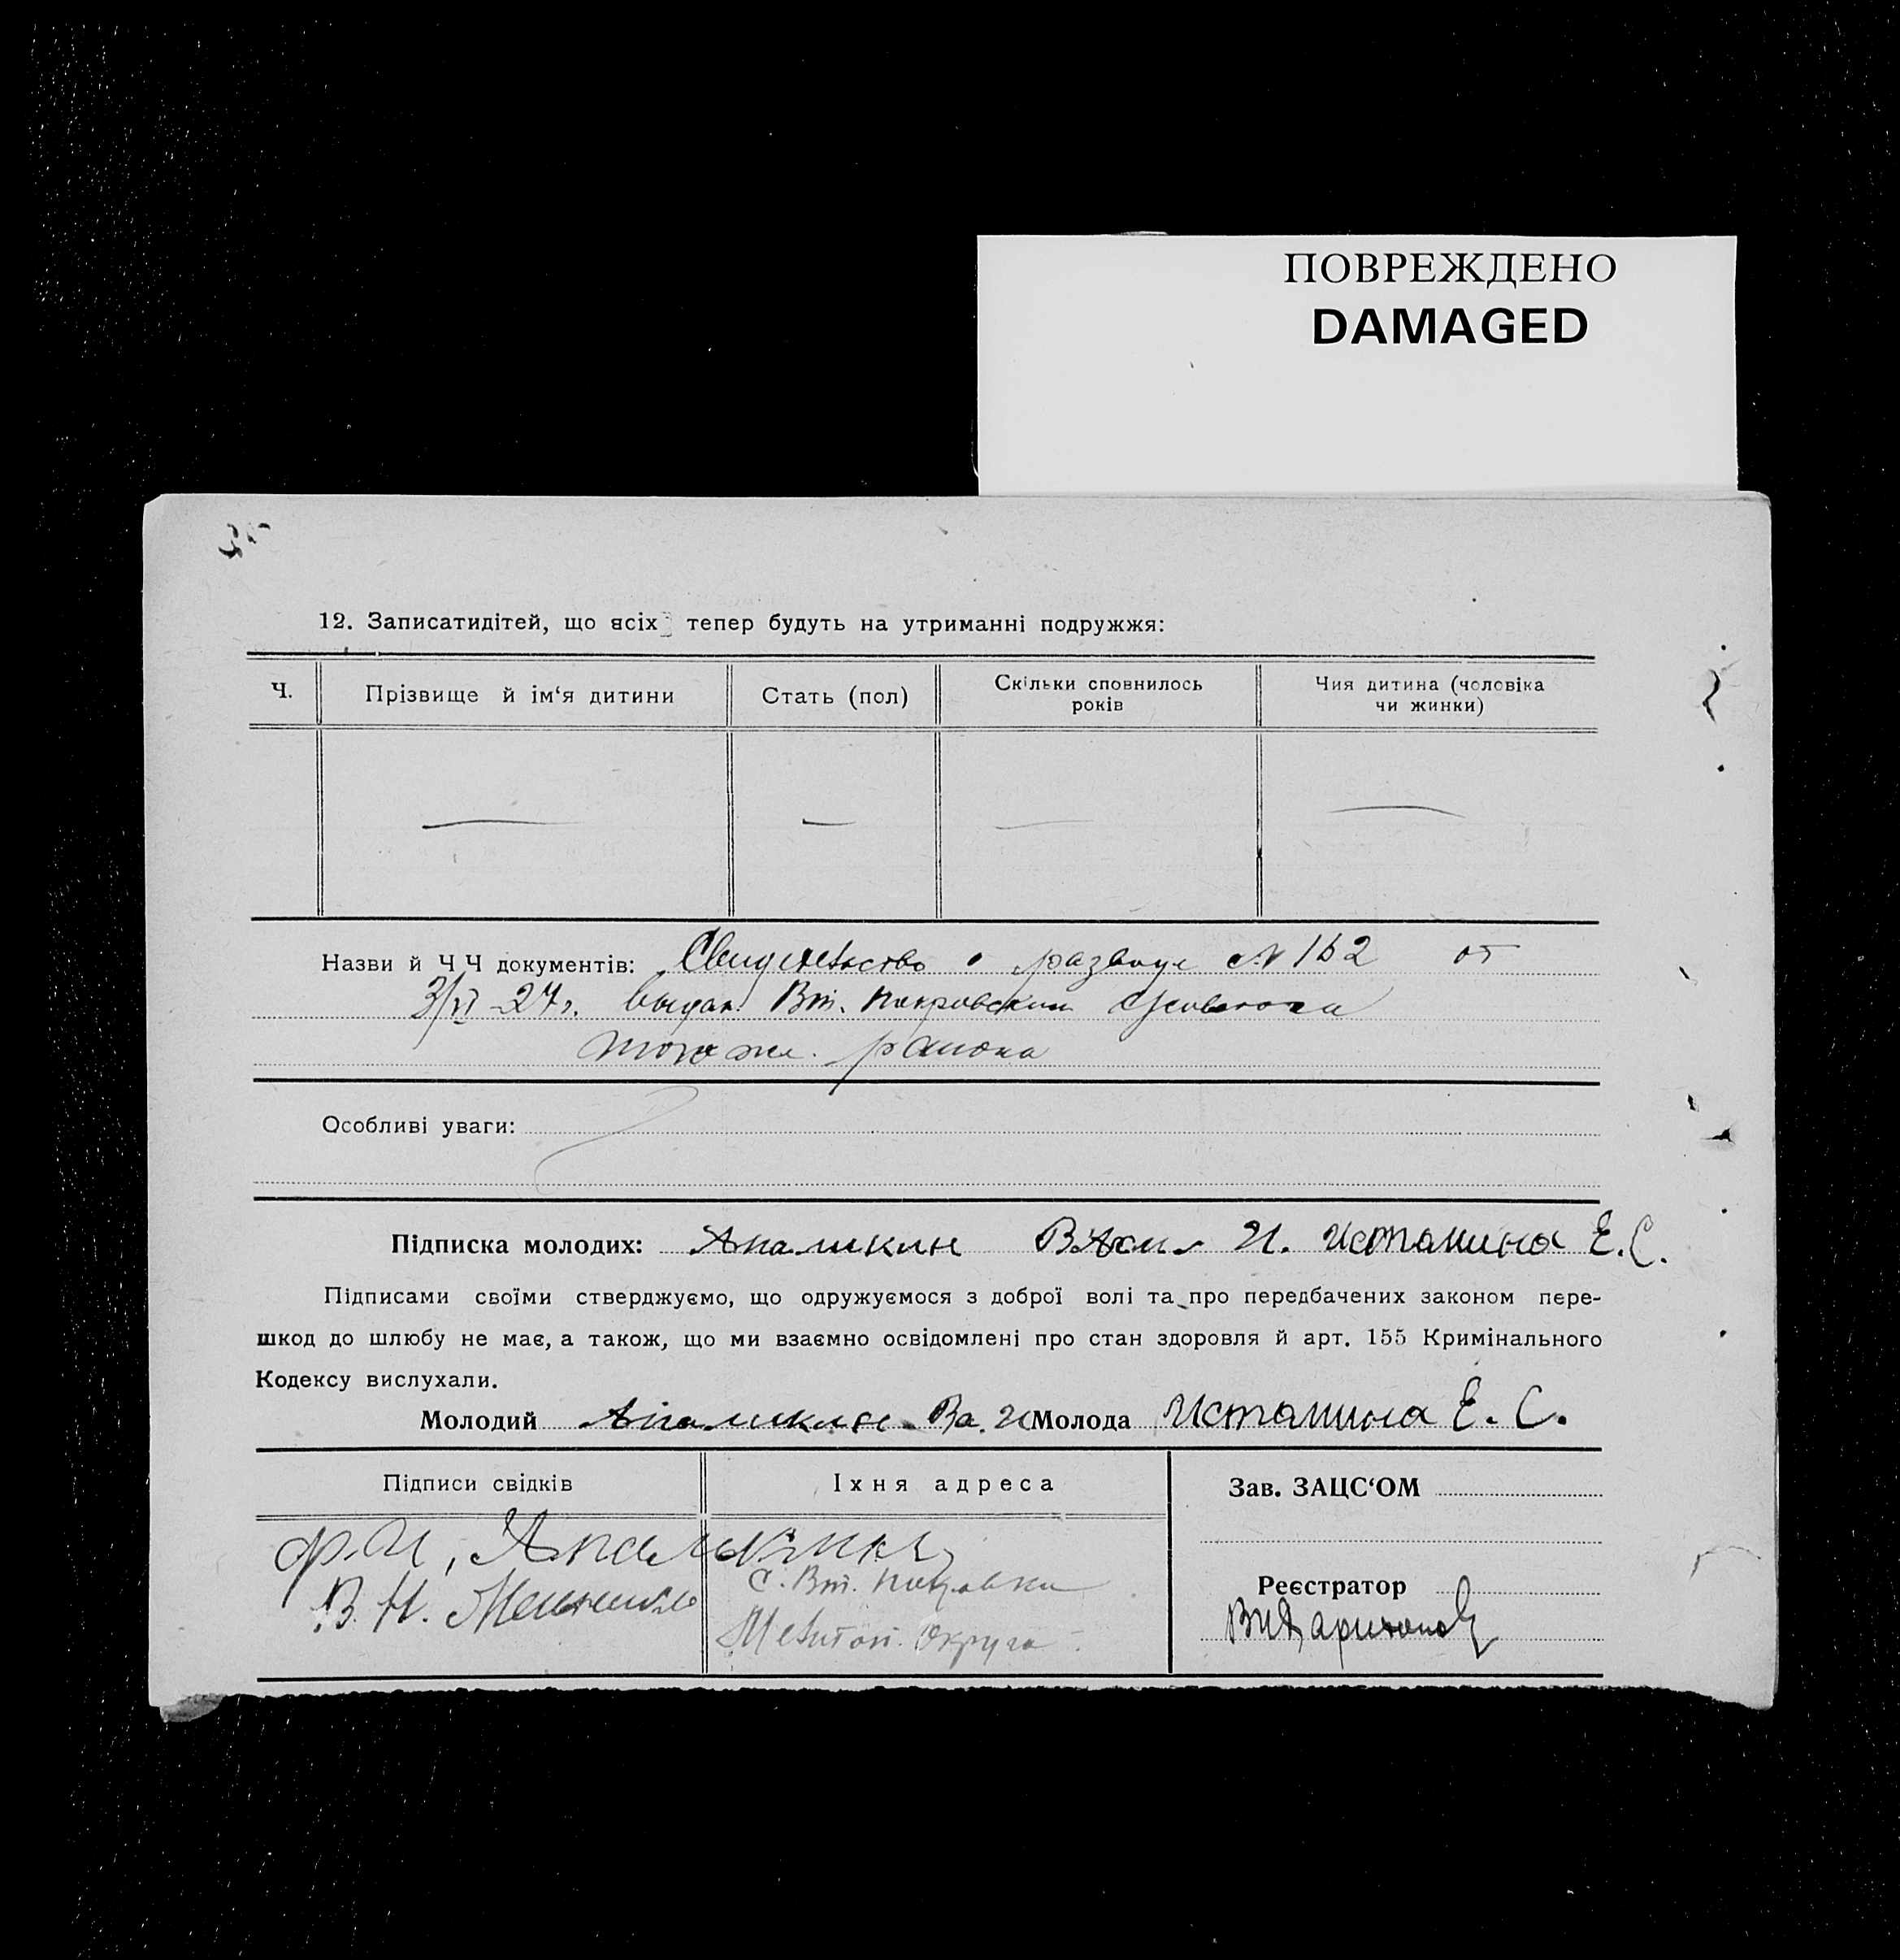 ПОВРЕЖДЕНО
DAMAGED
12. Записатидітей, що всіх тепер будуть на утриманні подружжя:
Ч.
Прізвище й ім‘я дитини
Стать (пол)
Скільки сповнилось років
Чия дитина (чоловіка чи жинки)
Назви й Ч Ч документів: Свидетельство о разводе № 162 от
3/VI-27г. выдан. Вт. Покровским
того же. района
Особливі уваги:
Підписка молодих: Апаликин В И. Истомина Е. С.
Підписами своїми стверджуємо, що одружуємося з доброї волі та про передбачених законом пере-
шкод до шлюбу не має, а також, що ми взаємно освідомлені про стан здоровля й арт. 155 Кримінального
Кодексу вислухали.
Молодий Апаликин Ва. И Молода Истомина Е. С.
Підписи свідків
Їхня адреса
Зав. ЗАЦС‘ОМ
Ф. И,
В. Н.
С. Вт. Покровка
Мелитоп. Округа
Реєстратор